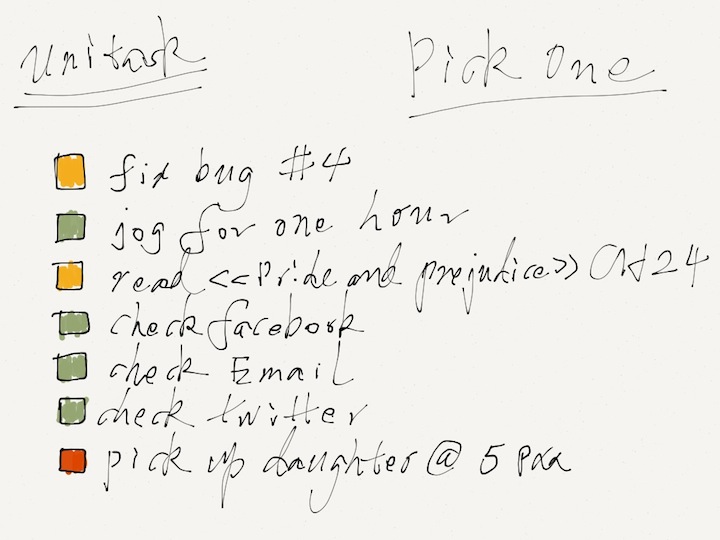 unitask
Pick one
fix bug #4
jog for one hour
read <<Pride and prejudice>> Ch 24
check facebook
check Email
check twitter
pick up daughter @ 5 pm